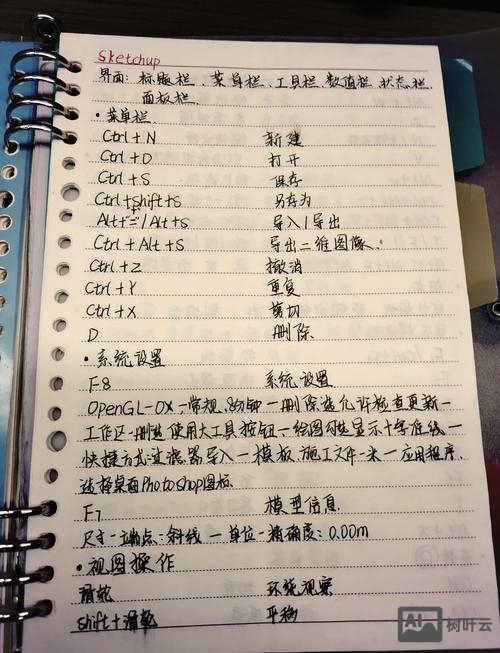 Sketchup
界面：标题栏、菜单栏、工具栏、数值栏、状态栏、
面板栏.
·菜单栏
Ctrl+N 新建
Ctrl+O 打开
Ctrl+S 保存
Ctrl+shift+S 另存为
Alt+"="/Alt+S 导入/导出
Ctrl+Alt+S 导出二维图像.
Ctrl+Z 撤消
Ctrl+Y 重复
Ctrl+X 剪切
D 删除
·系统设置
F8 系统设置
OpenGL-OX一常规, 8分钟一删除选允许检查更新一
工作区-删选使用大工具按钮、绘图勾选显示十字准线一
快捷方式过滤器导入一模板,施工文件-米一应用程序.
选择桌面Photoshop图标
F7 模型信息
尺寸-端点:斜线一单位-精确度:0.00m
·视图操作
滑轮 环绕观察
shift+滑轮 平移
AI 树叶云